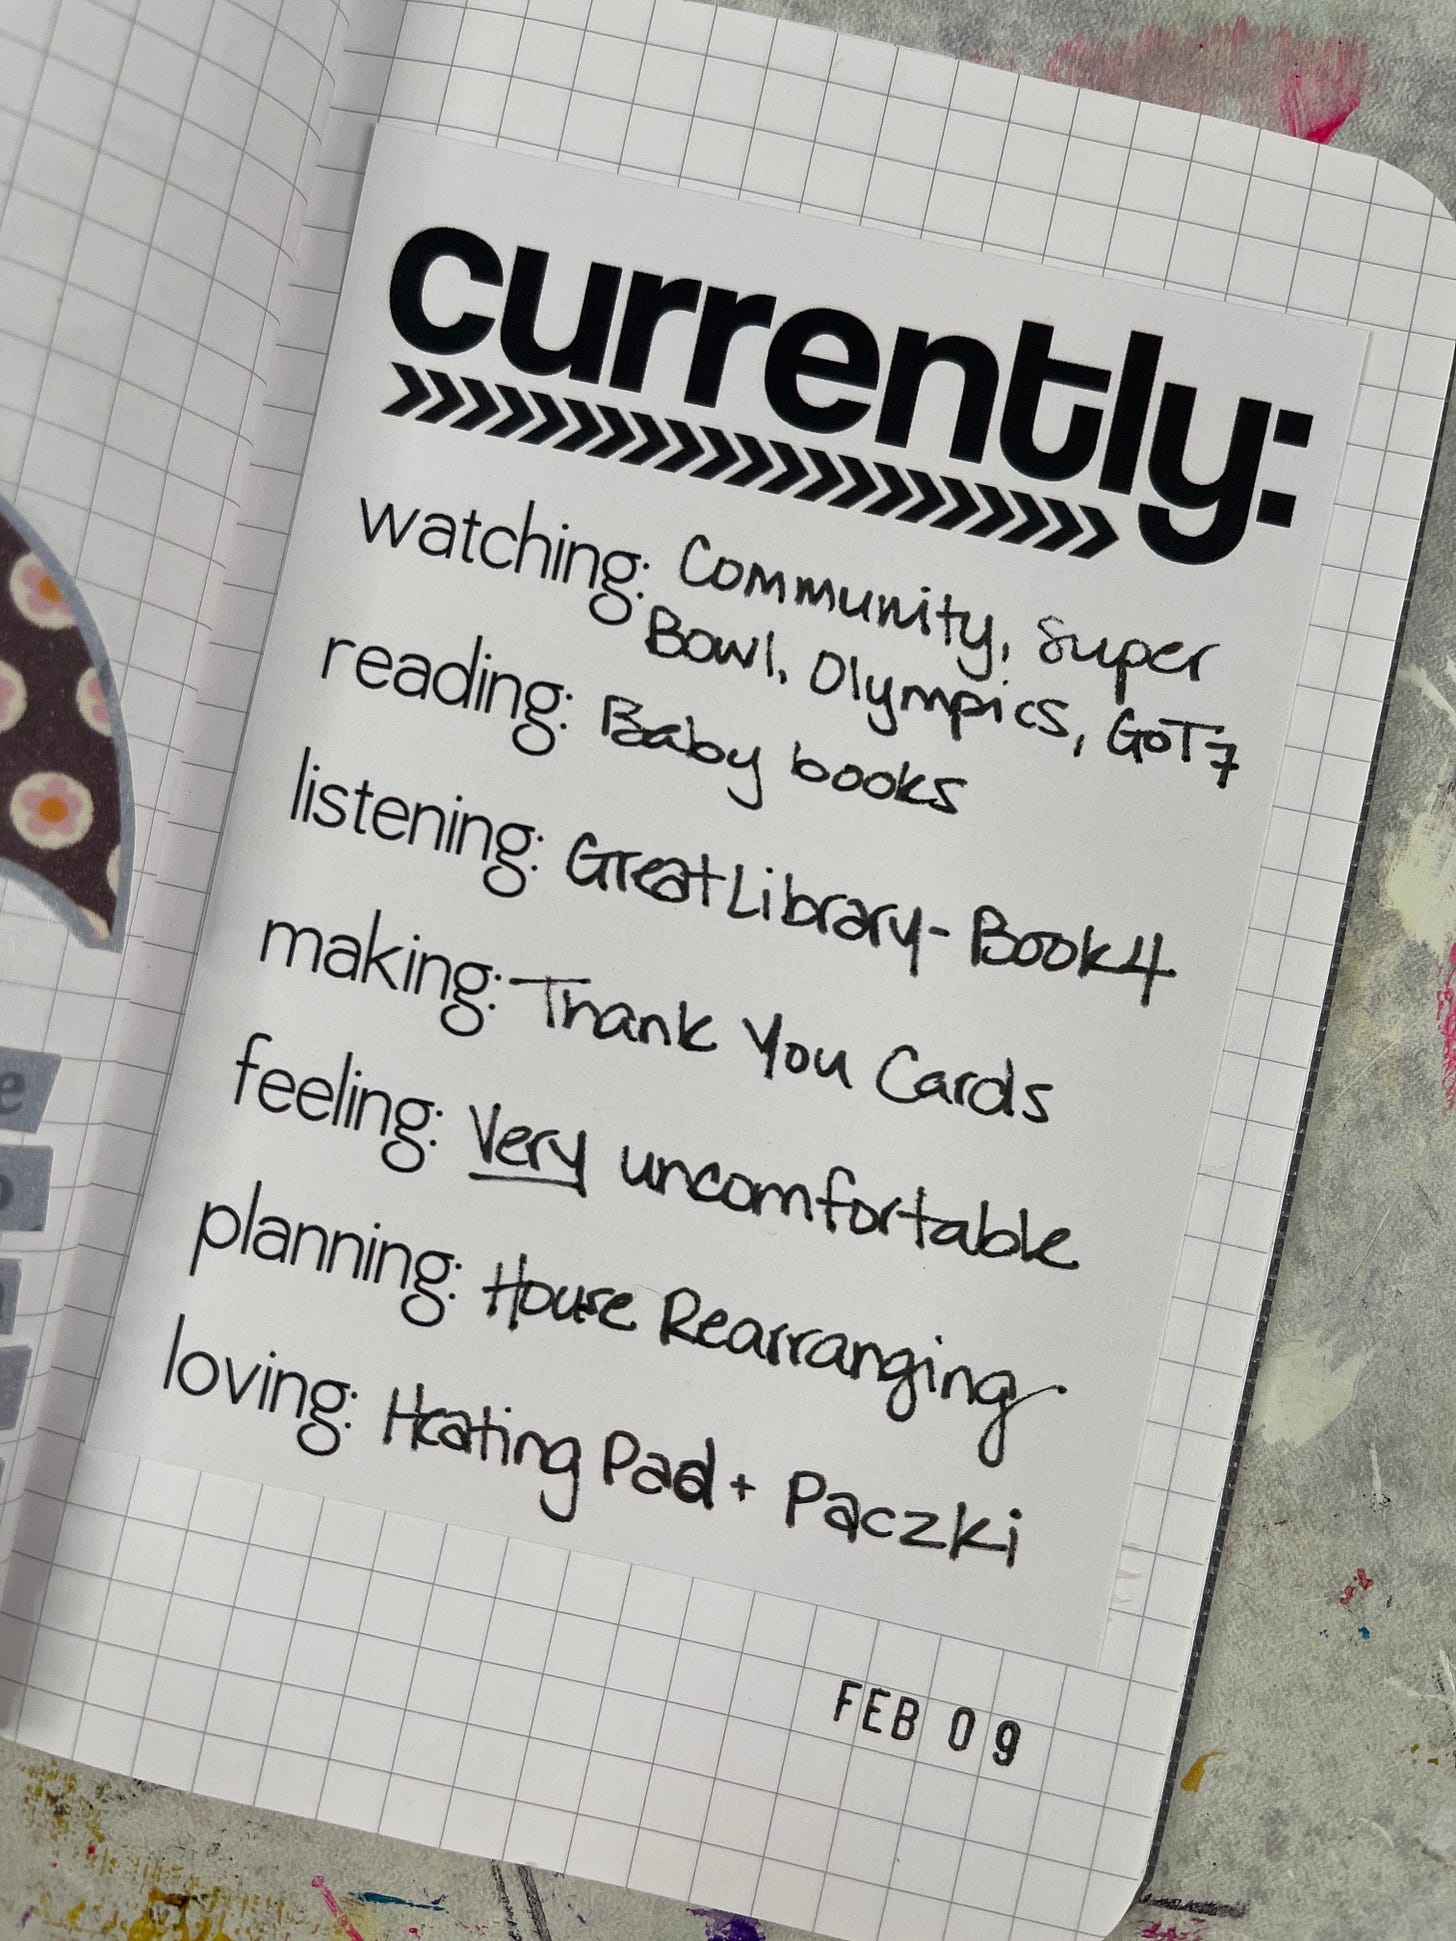 currently:
watching: Community, Super
Bowl, Olympics, GOT7
reading: Baby books
listening: Great Library - Book 4
making: Thank You Cards
feeling: Very uncomfortable
planning: House Rearranging
loving: Heating Pad + Paczki
FEB 09